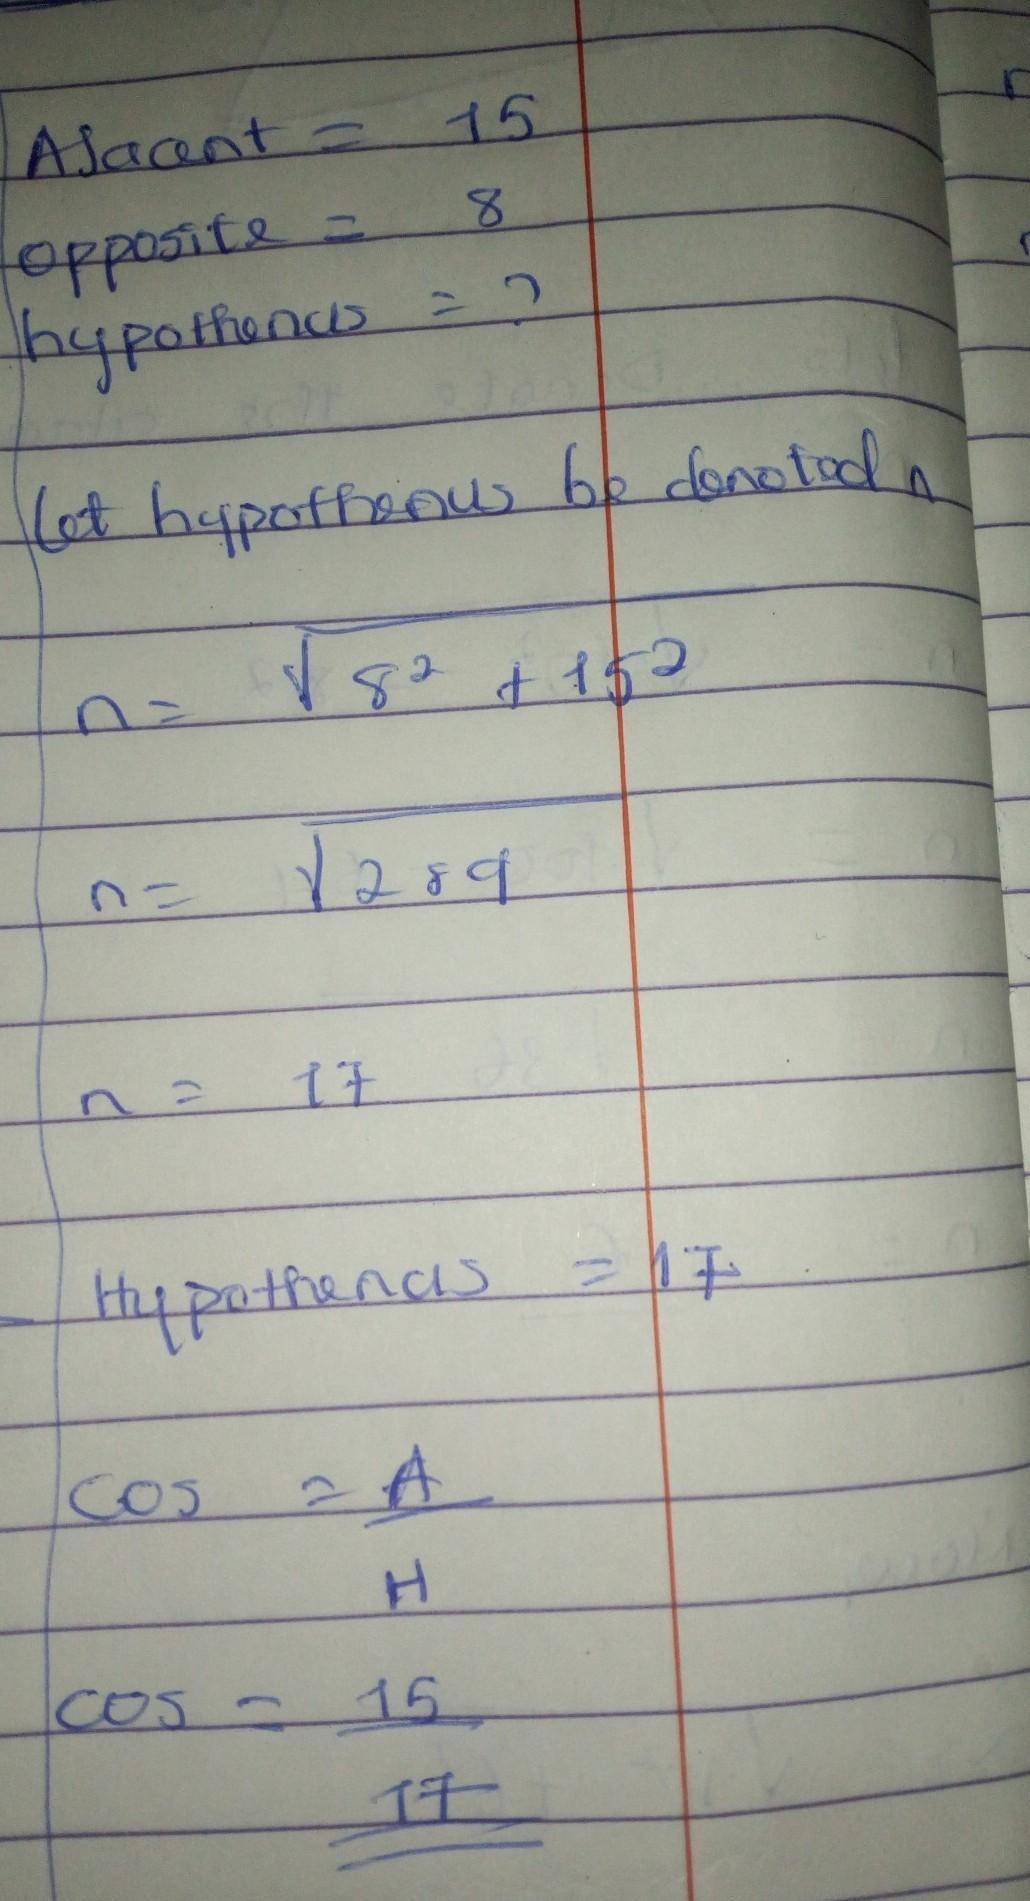 AJacent = 15
opposite = 8
hypothenus = ?
let hypothenus be denoted n
n = √8² + 15²
n = √289
n = 17
Hypothenus = 17
cos = A
H
cos = 15
17